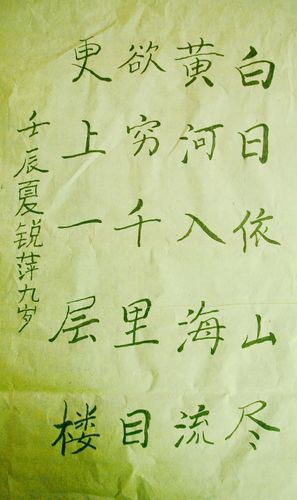 白日依山尽
黄河入海流
欲穷千里目
更上一层楼
壬辰夏锐萍九岁